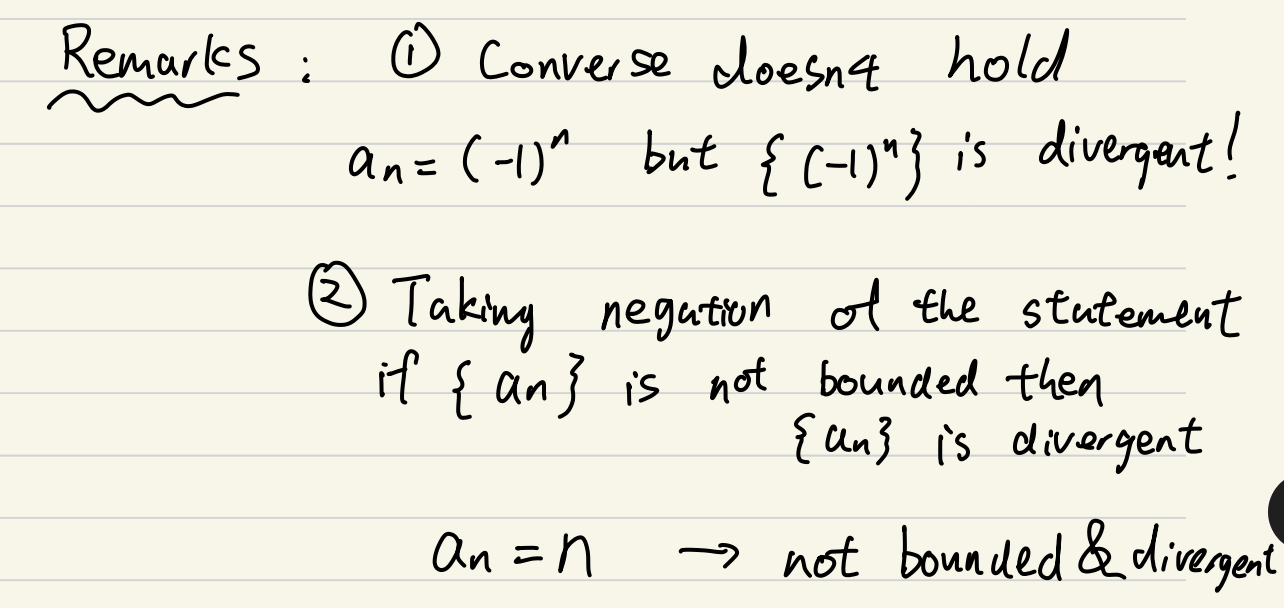 Remarks : ① Converse doesn4 hold
an = (-1)ⁿ but { (-1)ⁿ} is divergent!
② Taking negation of the statement
if { an } is not bounded then
{an} is divergent
an = n → not bounded & divergent